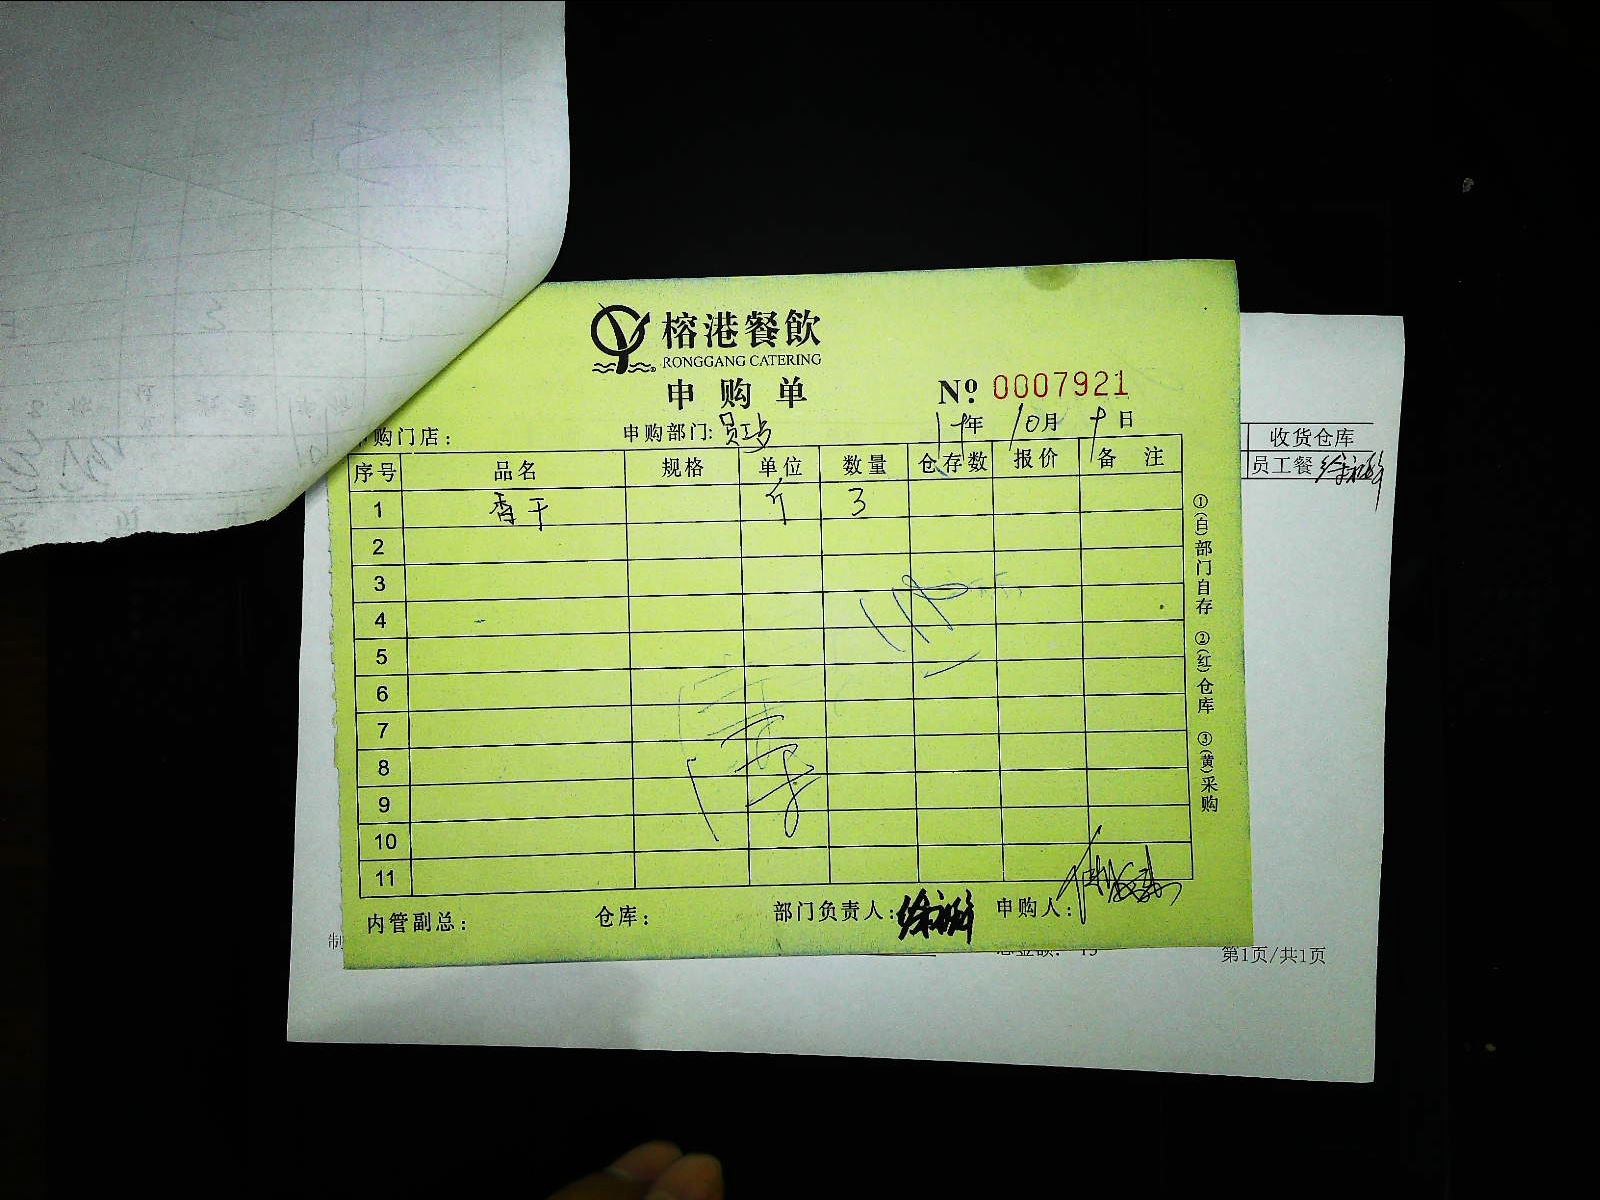 榕港餐飲
RONGGANG CATERING
申购单
№ 0007921
购门店: 申购部门: 年 10月 日
序号 品名 规格 单位 数量 仓存数 报价 备注
1 香干 斤 3
2
3
4
5
6
7
8
9
10
11
内管副总: 仓库: 部门负责人: 申购人:
①(白)部门自存 ②(红)仓库 ③(黄)采购
收货仓库
员工餐
第1页/共1页